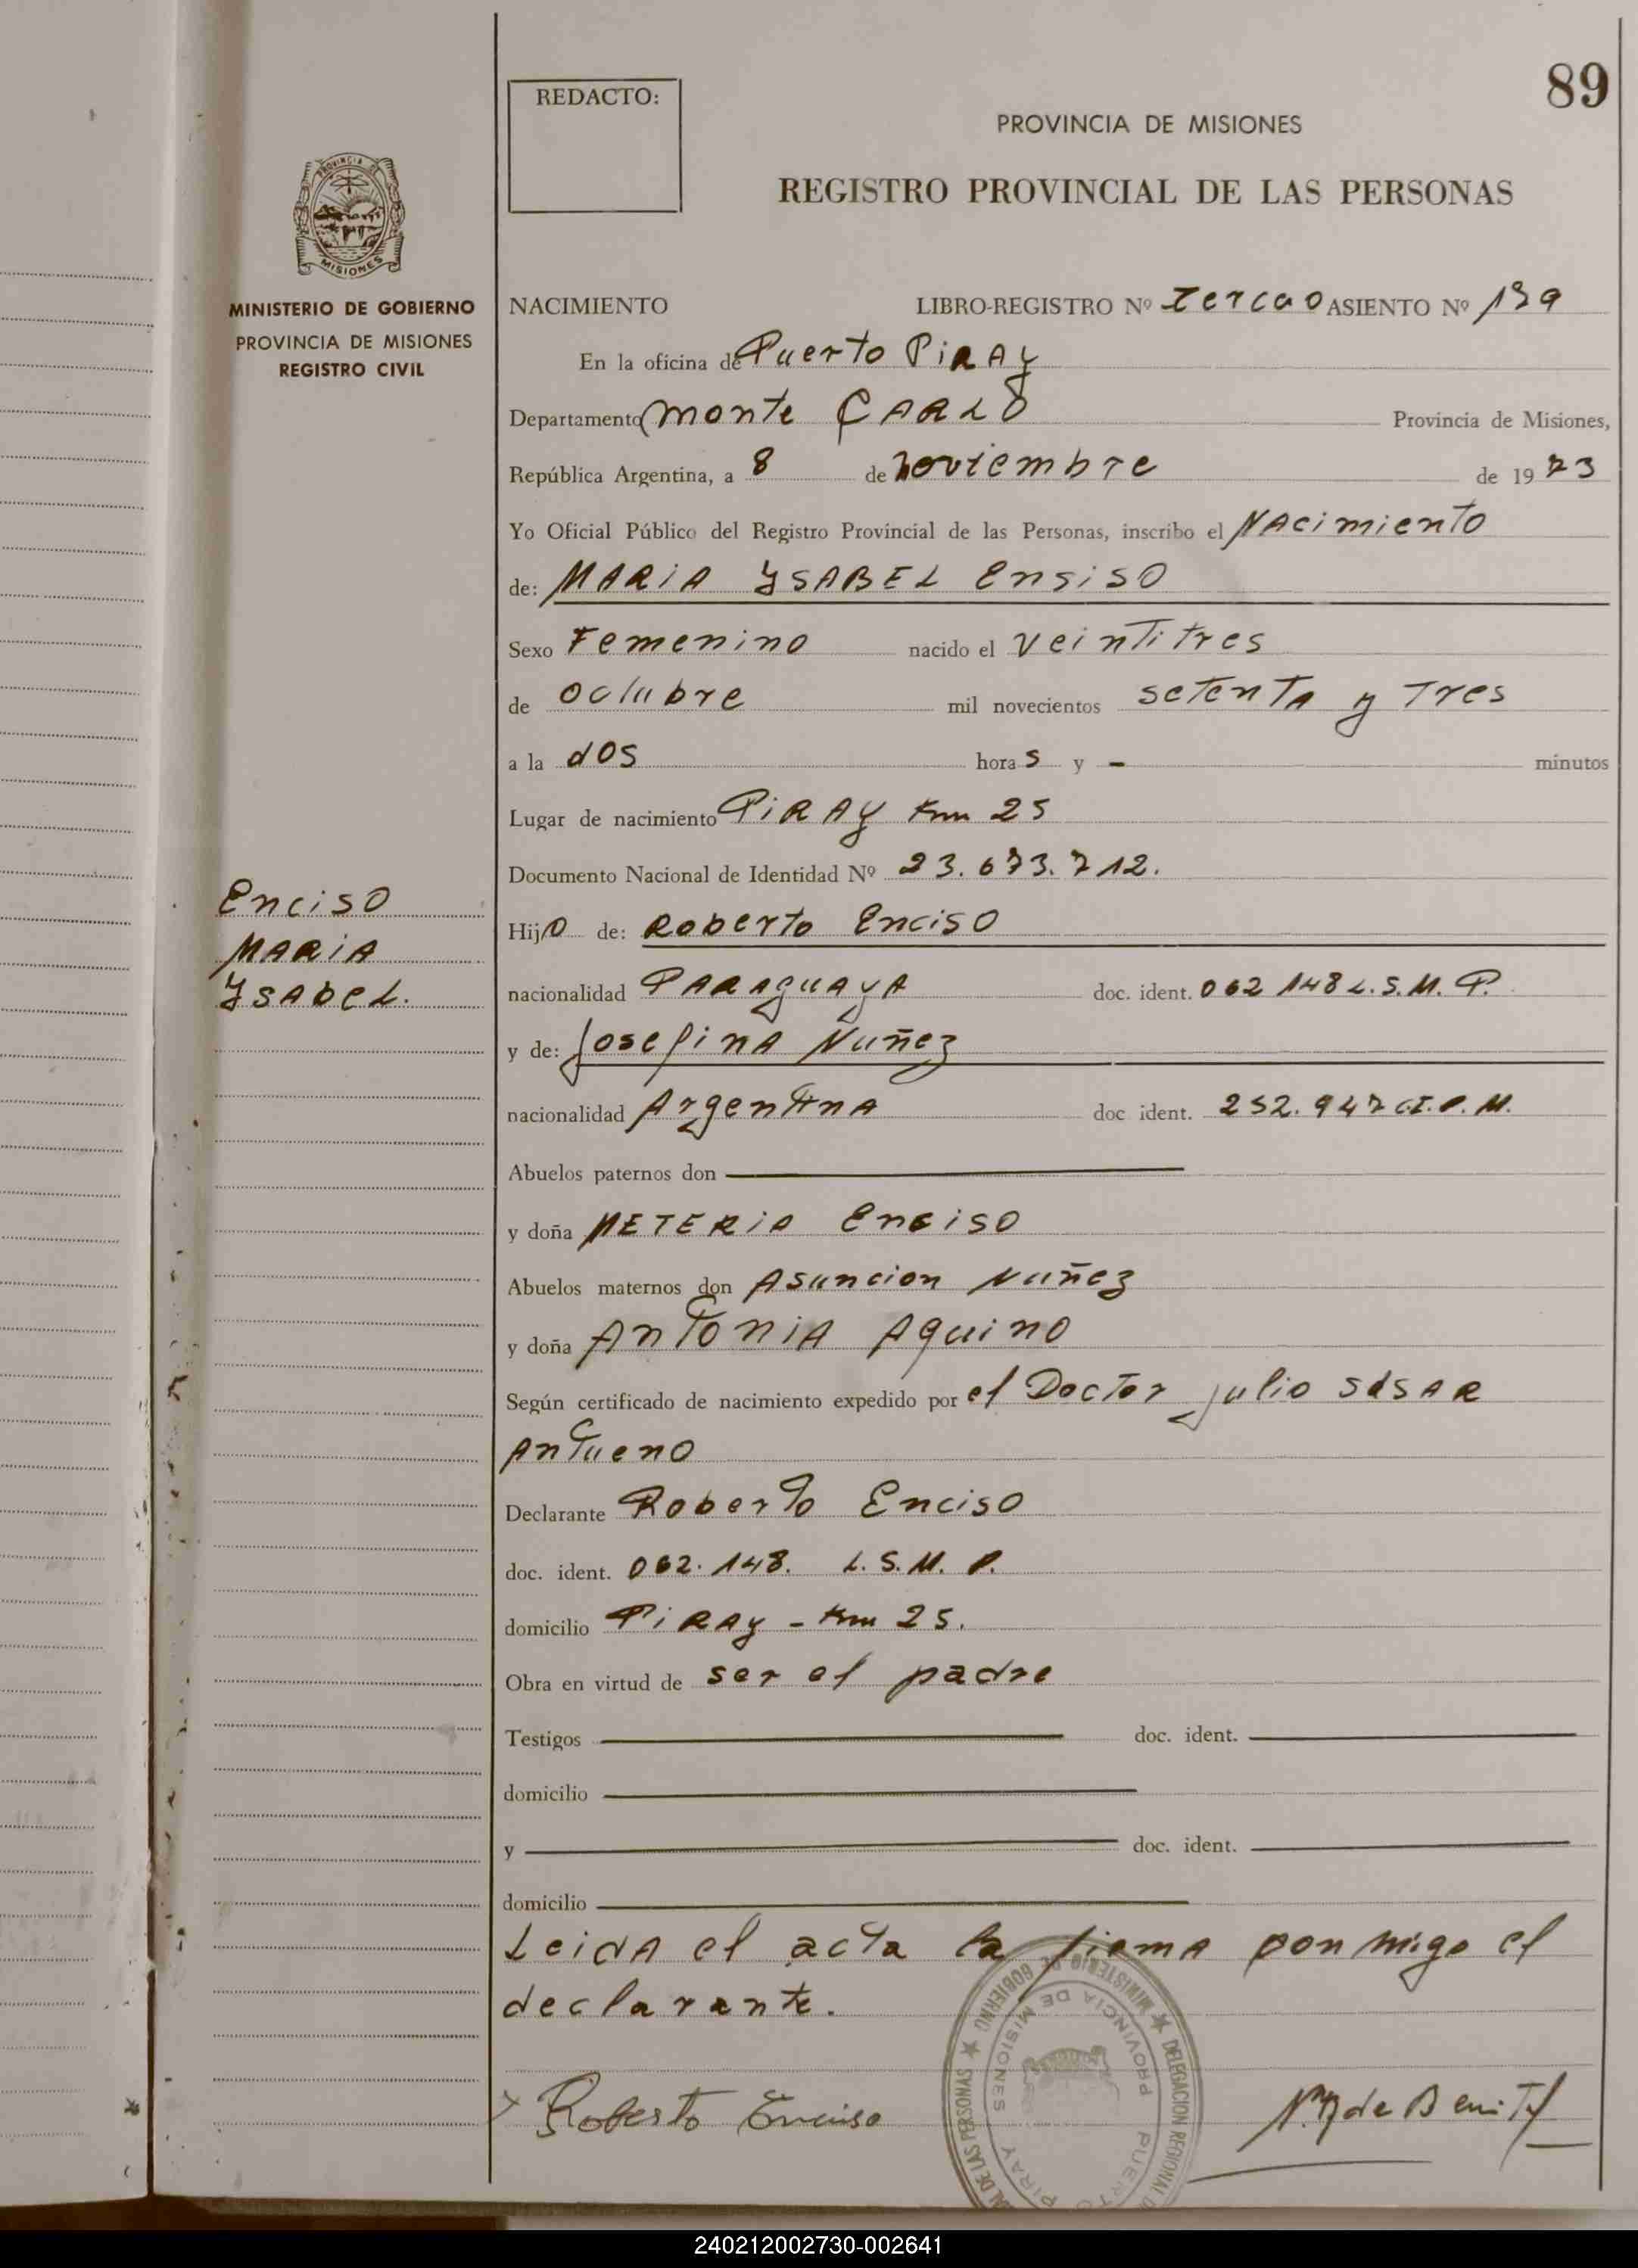 89
REDACTO:
PROVINCIA DE MISIONES
REGISTRO PROVINCIAL DE LAS PERSONAS
PROVINCIA DE
MISIONES
MINISTERIO DE GOBIERNO
PROVINCIA DE MISIONES
REGISTRO CIVIL
NACIMIENTO LIBRO-REGISTRO Nº ASIENTO Nº 139
En la oficina de Puerto PiRAy
Departamento Monte CARLO Provincia de Misiones,
República Argentina, a 8 de noviembre de 1973
Yo Oficial Público del Registro Provincial de las Personas, inscribo el NAcimiento
de: MARiA YSABEL Ensiso
Sexo Femenino nacido el veintitres
de octubre mil novecientos setenTA y Tres
a la dos horas y - minutos
Lugar de nacimiento PiRAy Km 25
Documento Nacional de Identidad Nº 23.673.712.
Enciso
MARiA
YsAbeL.
Hijo de: Roberto Enciso
nacionalidad PARAguAyA doc. ident. 062 148 L.S.M.P.
y de: JosefinA Nuñez
nacionalidad ArgentinA doc ident. 252.947 C.I.P.M.
Abuelos paternos don
y doña Enciso
Abuelos maternos don Asuncion Nuñez
y doña AnToniA Aquino
Según certificado de nacimiento expedido por el DocTor Julio SesAR
AnTueno
Declarante Roberto Enciso
doc. ident. 062.148. L.S.M.P.
domicilio PiRAy - Km 25.
Obra en virtud de ser el padre
Testigos doc. ident.
domicilio
y doc. ident.
domicilio
LeidA el acta la firmA conmigo el
declarante.
MINISTERIO DE GOBIERNO ★ DELEGACION REGIONAL
DE LAS PERSONAS ★
PROVINCIA DE MISIONES
PUERTO PIRAY
Roberto Enciso
240212002730-002641